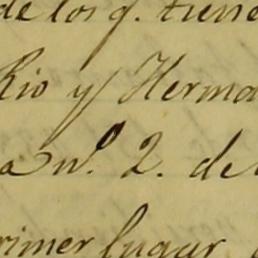 de los q. tiene
Rio y Herma
a n.º 2. de
primer lugar